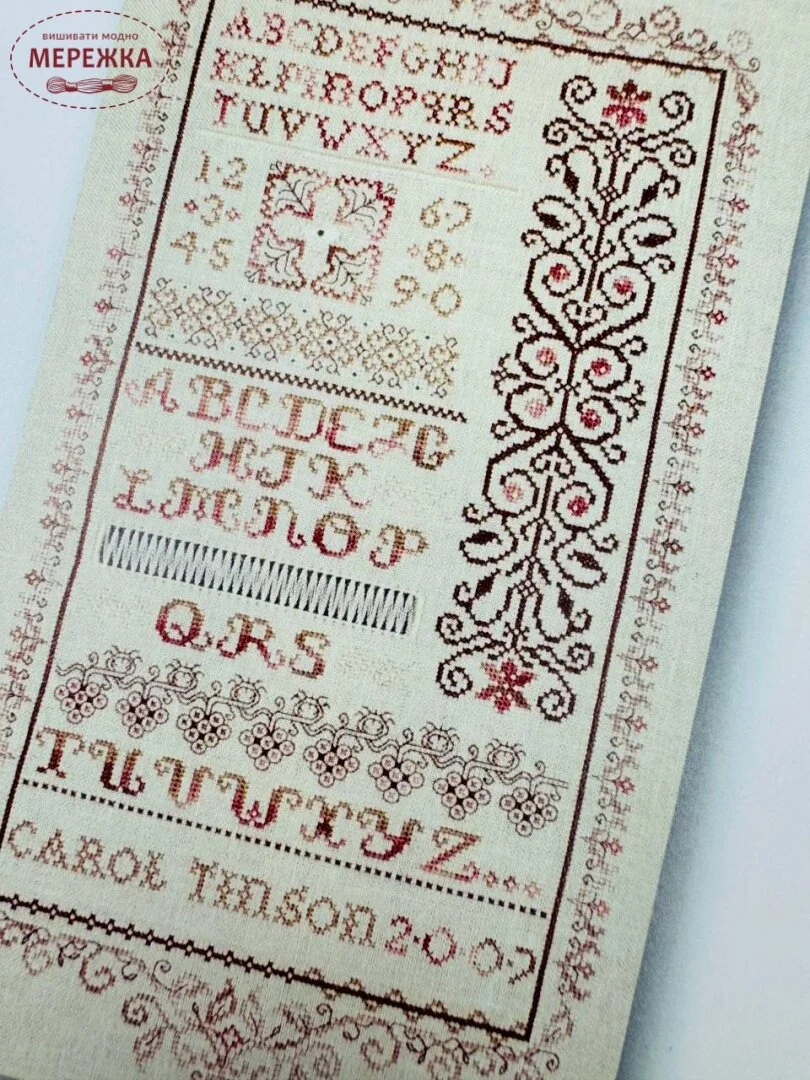 вишивати модно
МЕРЕЖКА
ABCDEFGHIJ
KLMNOPQRS
TUVWXYZ
1·2
3
4·5
6 7
8
9·0
ABCDEFG
HJK
LMNOP
QRS
TUVWXYZ...
CAROL TINSON 2·0·0·7